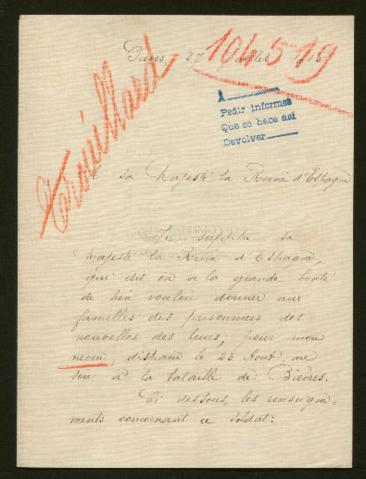 Paris, 27 Juillet 1915
104519
Trouillard
A
Pedir informes
Que se hace así
Devolver
A sa Majesté la Reine d'Espagne
Je supplie sa
Majesté la Reine d'Espagne,
qui dit on a la grande bonté
de bien vouloir donner aux
familles des prisonniers des
nouvelles des leurs, pour mon
neveu, disparu le 23 Août, au
soir à la bataille de Bièvres.
Ci dessous, les renseigne-
ments concernant ce soldat: